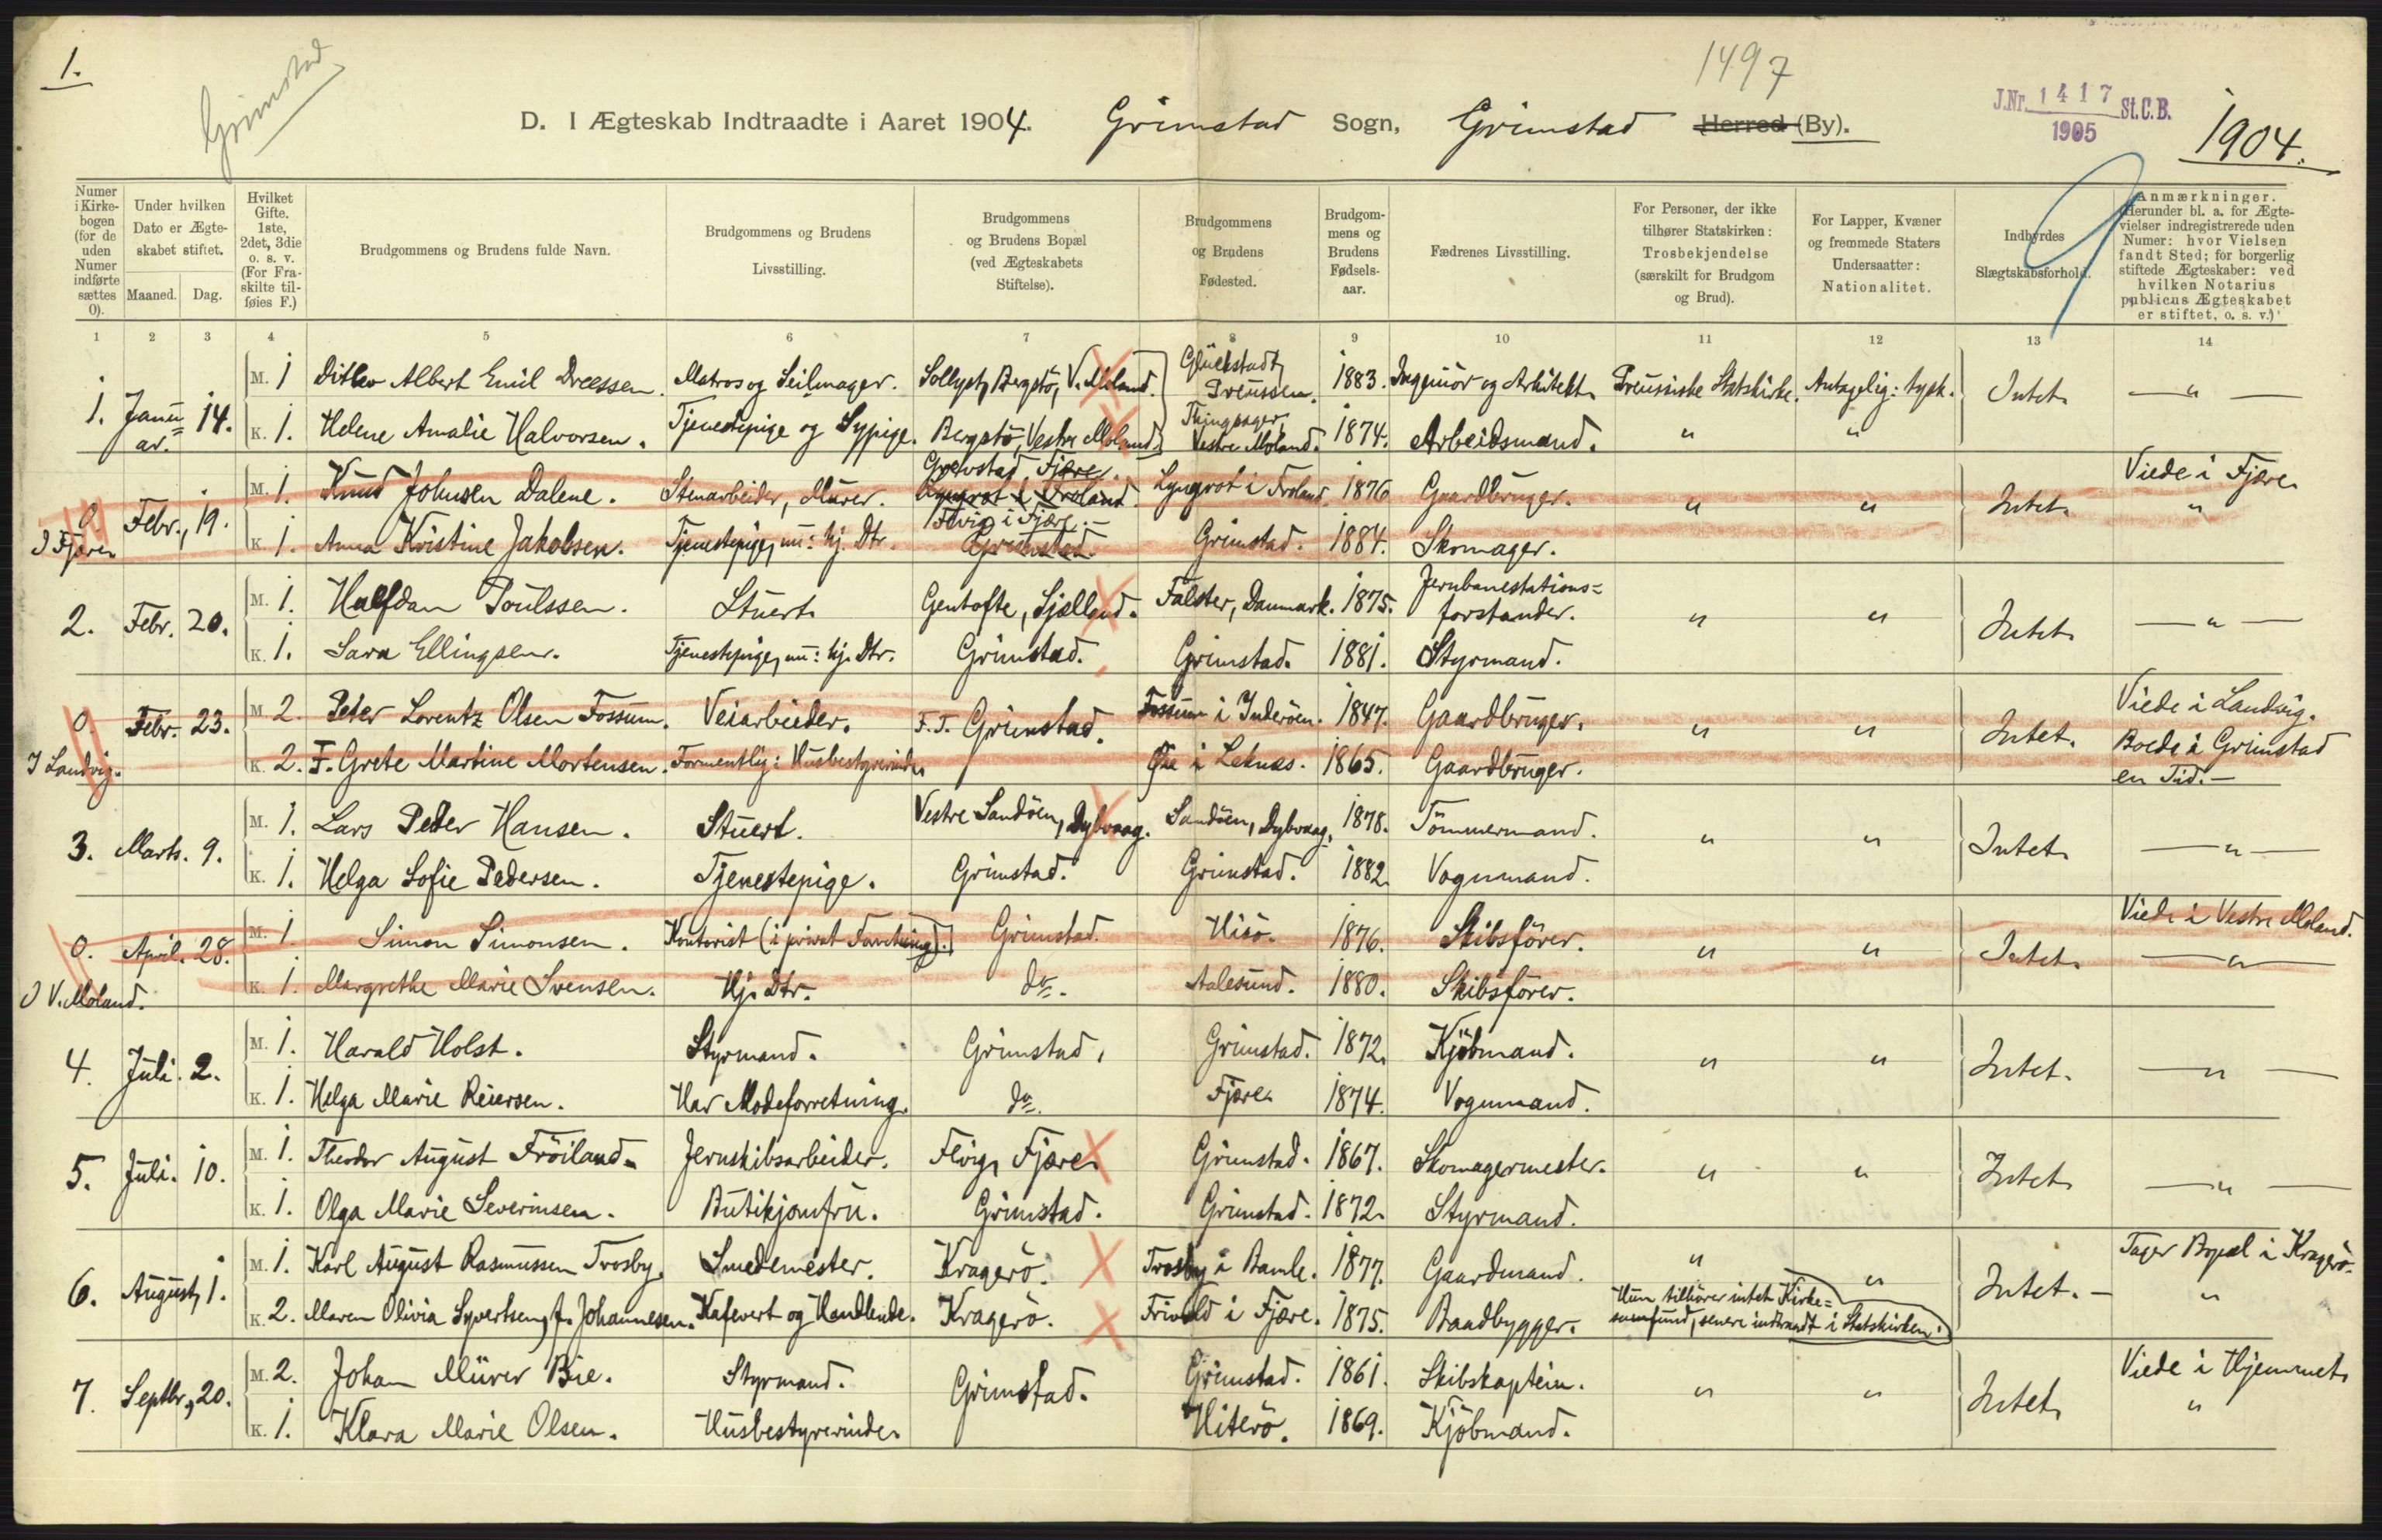 1.
Grimstad
1497
D. I Ægteskab Indtraadte i Aaret 1904. Grimstad Sogn, Grimstad Herred (By).
J.Nr. 1417 St.C.B.
1905
1904.
Numer i Kirkebogen (for de uden Numer indførte sættes 0).
Under hvilken Dato er Ægteskabet stiftet.
Maaned. Dag.
Hvilket Gifte. 1ste, 2det, 3die o. s. v. (For Fraskilte tilføies F.)
Brudgommens og Brudens fulde Navn.
Brudgommens og Brudens Livsstilling.
Brudgommens og Brudens Bopæl (ved Ægteskabets Stiftelse).
Brudgommens og Brudens Fødested.
Brudgommens og Brudens Fødselsaar.
Fædrenes Livsstilling.
For Personer, der ikke tilhører Statskirken: Trosbekjendelse (særskilt for Brudgom og Brud).
For Lapper, Kvæner og fremmede Staters Undersaatter: Nationalitet.
Indbyrdes Slægtskabsforhold.
Anmærkninger. Herunder bl. a. for Ægtevielser indregistrerede uden Numer: hvor Vielsen fandt Sted; for borgerlig stiftede Ægteskaber: ved hvilken Notarius publicus Ægteskabet er stiftet, o. s. v.)
1 2 3 4 5 6 7 8 9 10 11 12 13 14
1. Januar. 14. M. 1 Ditlev Albert Emil Dreessen. Matros og Seilmager. Sollyst, Bergstö, V. Moland. Glückstadt, Preussen. 1883. Ingeniör og Arkitekt. Preussiske Statskirke. Antagelig: tysk. Intet. — " —
K. 1. Helene Amalie Halvorsen. Tjenestepige og Sypige. Bergstö, Vestre Moland. Vestre Moland. 1874. Arbeidsmand. " "
0. I Fjære. Febr., 19. M. 1. Knud Johnsen Dalene. Stenarbeider, Mürer. Grevstad, Fjære. Lyngrot i Froland. Lyngrot i Froland. 1876 Gaardbruger. " " Intet. Viede i Fjære.
K. 1. Anna Kristine Jakobsen. Tjenestepige, nu: hj. Dtr. Fevig i Fjære. — Grimstad. Grimstad. 1884. Skomager. "
2. Febr. 20. M. 1. Halfdan Poulssen. Stuert. Gentofte, Sjælland. Falster, Danmark. 1875. Jernbanestations=
forstander. " " Intet. — " —
K. 1. Sara Ellingsen. Tjenestepige, nu: hj. Dtr. Grimstad. Grimstad. 1881. Styrmand.
0. I Landvig. Febr. 23. M. 2. Peter Lorentz Olsen Fossum. Veiarbeider. F.T. Grimstad. Fossum i Inderöen. 1847. Gaardbruger. " " Intet. Viede i Landvig.
K. 2. F. Grete Martine Mortensen. Formentlig: Husbestyrerinde. i Leknes. 1865. Gaardbruger. Boede i Grimstad
en Tid. —
3. Marts. 9. M. 1. Lars Peder Hansen. Stuert. Vestre Sandöen, Dybvaag. Sandöen, Dybvaag. 1878. Tömmermand. " " Intet. — " —
K. 1. Helga Sofie Pedersen. Tjenestepige. Grimstad. Grimstad. 1882. Vognmand.
0. I V. Moland. April. 28. M. 1 Simon Simonsen. Kontorist (i privat Forretning). Grimstad. Hisö. 1876. Skibsförer. " " Intet. Viede i Vestre Moland.
K. 1. Margrethe Marie Svensen. Hj. Dtr. do. Aalesund. 1880. Skibsförer. — " —
4. Juli. 2. M. 1. Harald Holst. Styrmand. Grimstad. Grimstad. 1872. Kjöbmand. " " Intet. — " —
K. 1. Helga Marie Reiersen. Har Modeforretning. do. Fjære. 1874. Vognmand.
5. Juli. 10. M. 1. Theodor August Fröiland. Jernskibsarbeider. Fevig, Fjære. Grimstad. 1867. Skomagermester. " " Intet. — " —
K. 1. Olga Marie Severinsen. Butikjomfru. Grimstad. Grimstad. 1872. Styrmand.
6. August, 1. M. 1. Karl August Rasmussen Trosby. Smedemester. Kragerö. Trosby i Bamle. 1877. Gaardmand. " " Intet. — Tager Bopæl i Kragerö.
K. 2. Maren Olivia Syvertsen, f. Johannesen. Kafevert og Handlende. Kragerö. Frivold i Fjære. 1875. Baadbygger. Hun tilhörer intet Kirke=
samfund, senere indtraadt i Statskirken. "
7. Septbr., 20. M. 2. Johan Mürer Bie. Styrmand. Grimstad. Grimstad. 1861. Skibskaptein. " " Intet. Viede i Hjemmet.
K. 1. Klara Marie Olsen. Husbestyrerinde. Hiterö. 1869. Kjöbmand. "